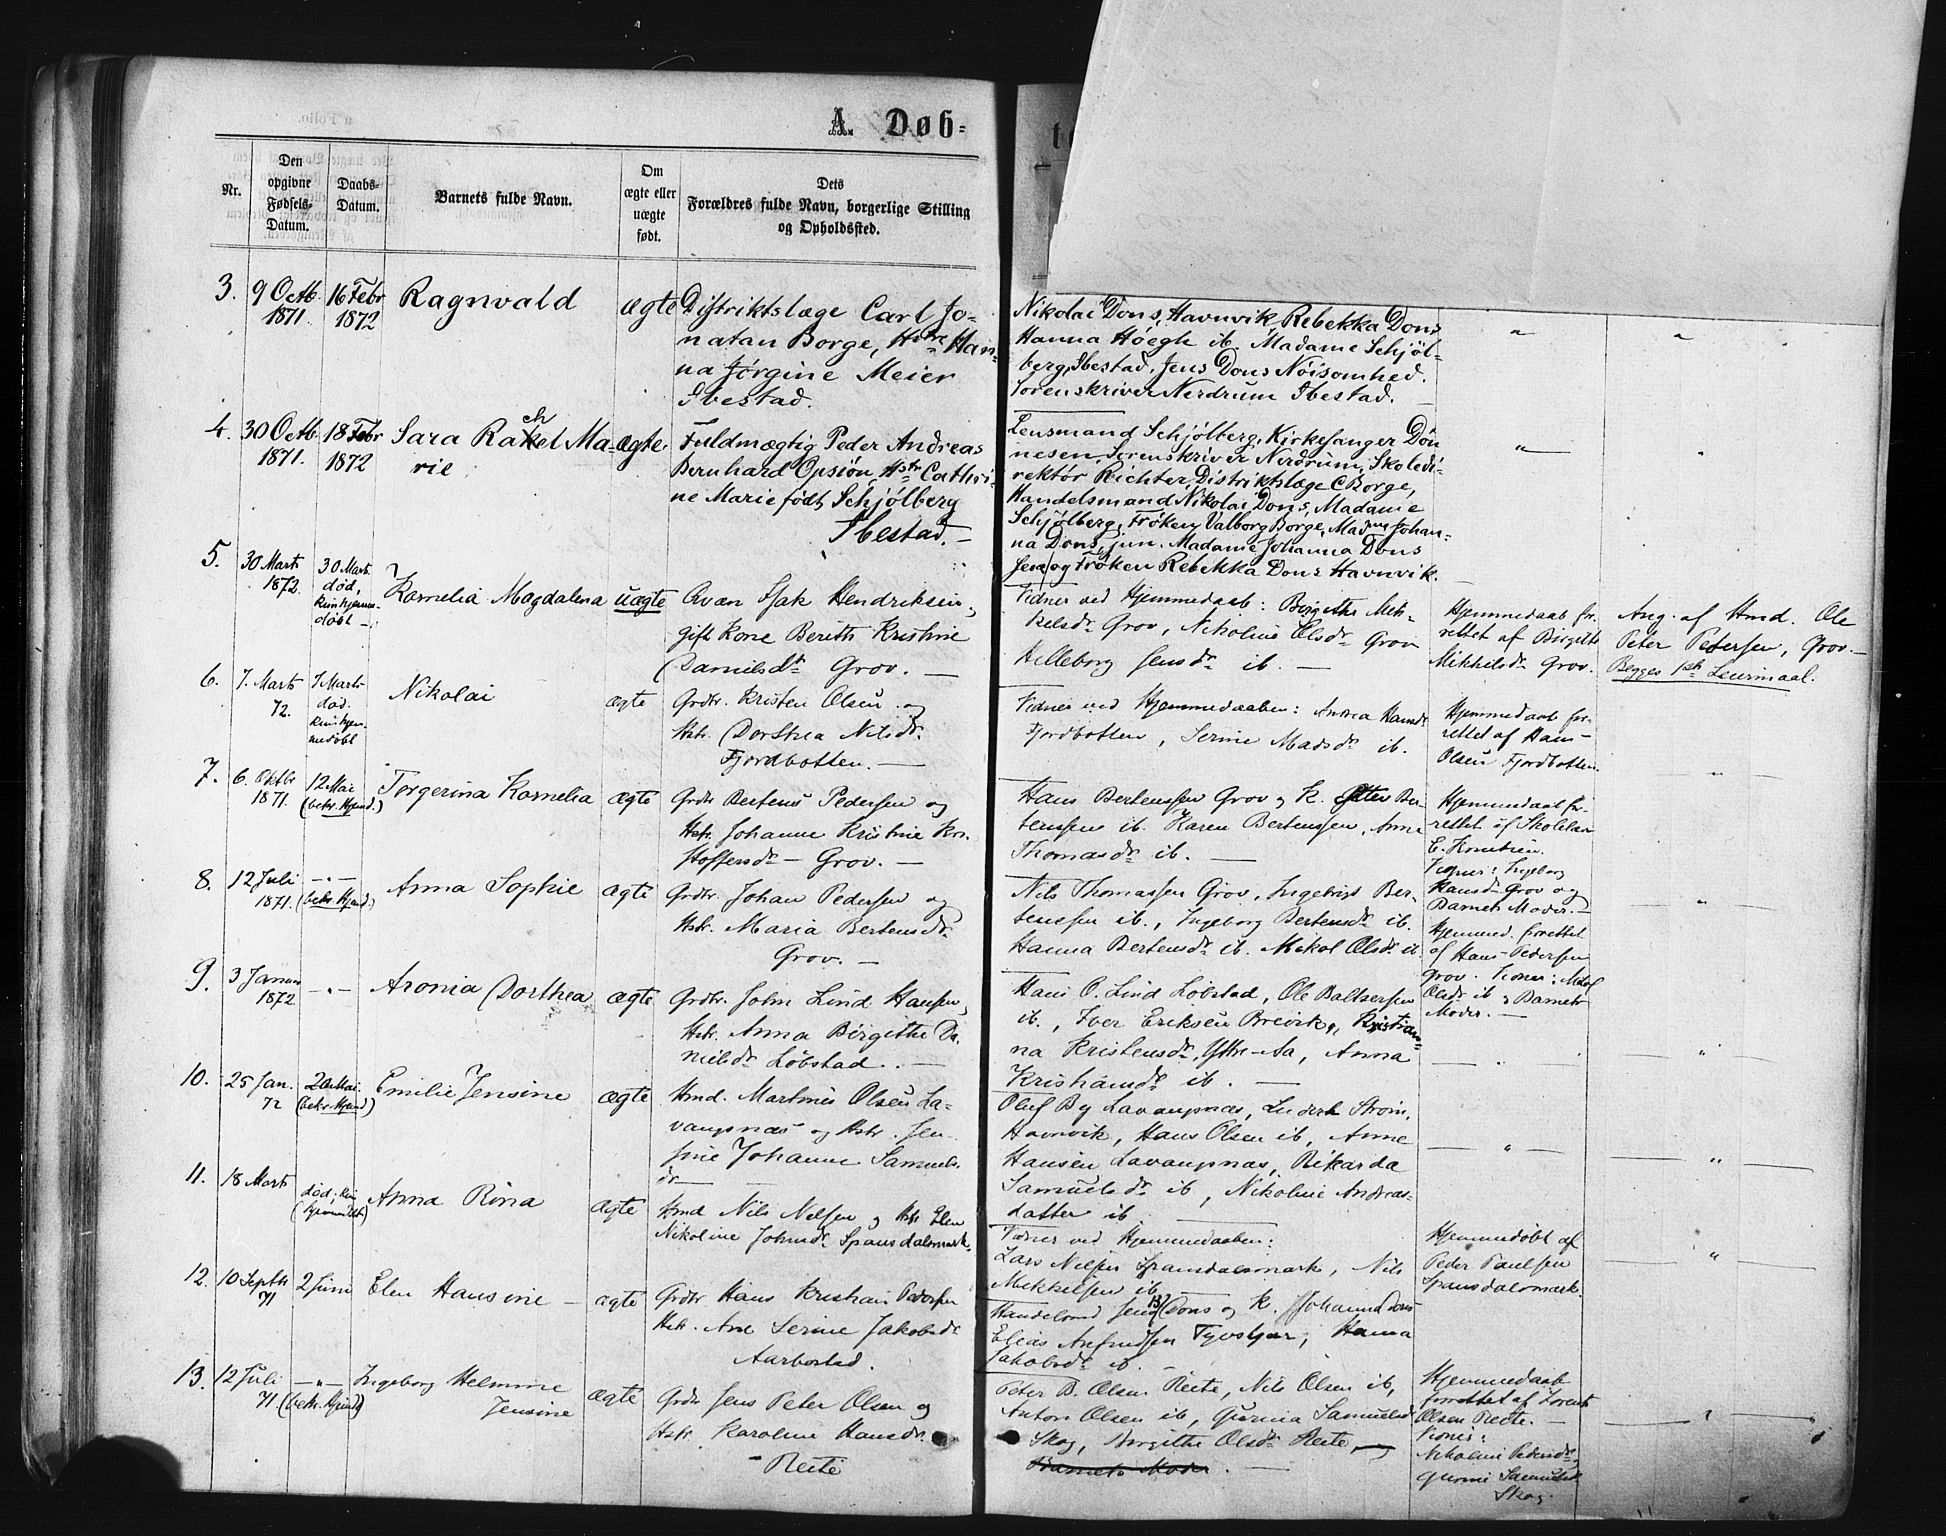 A. Døb-
Nr.
Den
opgivne
Fødsels-
Datum.
Daabs-
Datum.
Barnets fulde Navn.
Om
ægte eller
uægte
født.
Dets
Forældres fulde Navn, borgerlige Stilling
og Opholdssted.
3. 9 Octb. 1871. 16 Febr 1872 Ragnvald ægte
Distriktslæge Carl Jo-
natan Borge, Hstr Han-
na Jørgine Meier
Ibestad.
Nikolai Dons, Havnvik, Rebekka Dons
Hanna Höegh ib. Madame Schjöl-
berg, Ibestad, Jens Dons Nöisomhed.
Sorenskriver Nerdrum Ibestad.
4. 30 Octb. 1871. 18 Febr 1872 Sara Rachel Ma-
rie ægte
Fuldmægtig Peder Andreas
Bernhard Opsiøn, Hstr Cathri-
ne Marie født Schjölberg
Ibestad.
Lensmand Schjölberg, Kirkesanger Dön
nesen, Sorenskriver Nerdrum, Skoledi-
rektör Richter, Distriktslæge C Borge,
Handelsmand Nikolai Dons, Madame
Schjölberg, Fröken Valborg Borge, Madme Johan-
na Dons, jun. Madame Johanna Dons
sen. og Fröken Rebekka Dons Havnvik.
5. 30 Marts 1872. 30 Marts
død,
kun hjemme-
døbt
Kornelia Magdalena uægte
Isak Hendriksen,
gift Kone Berith Kristine
Danielsdtr Grov.
Vidner ved Hjemmedaab: Birgithe Mik-
kelsdr Grov, Nikoline Olsdr Grov
Helleborg Jensdr ib.
Hjemmedaab for-
rettet af Birgitte
Mikkelsdr Grov.
Ang. af Hmd. Ole
Peter Petersen, Grov.
Begges 1ste Leiermaal.
6. 7. Marts 72. 7 Marts
død.
kun hjem-
medøbt
Nikolai ægte
Grdbr. Kristen Olsen og
Hstr. Dorthea Nilsdr.
Fjordbotten.
Vidner ved Hjemmedaaben: Andrea Hansdr
Fjordbotten, Serine Madsdr ib.
Hjemmedaab for-
rettet af Hans
Olsen Fjordbotten.
7. 6. Oktbr 1871. 12 Mai
(bekr. Hjmd.)
Torgerina Kornelia ægte
Grdbr Bertens Pedersen og
Hstr. Johanne Kristine Kri-
stoffersdr Grov.
Hans Bertenssen Grov og K. Peter Ber-
tenssen ib. Karen Bertenssen, Anne
Thomasdr ib.
Hjemmedaab for-
rettet af Skolelær
Vidner: Ingeborg
Hansdr Grov og
Barnets Moder.
8. 12 Juli 1871. (bekr. Hjmd.)
Anna Sophie ægte
Grdbr. Johan Pedersen og
Hstr. Maria Bertensdr.
Grov.
Nils Thomassen Grov, Ingebrigt Ber-
tenssen ib., Ingeborg Bertensdr ib.
Hanna Bertensdr ib. Mikal Olsdr ib
Hjemmed. forrettet
af Hans Pedersen
Grov. Vidner:
Olsdr ib og Barnets
Moder.
9. 3 Januar 1872
Aronia Dorthea ægte
Grdbr. John Lind Hansen,
Hstr. Anna Birgithe Da-
nielsdr Löbstad.
Hans O. Lind Löbstad, Ole Baltzersen
ib., Iver Eriksen Breivik, Kristian-
na Kristensdr, Ytre-Aa, Anna
Kristiansdr ib.
10. 25 Jan. 72 20 Mai.
(bekr. Hjmd)
Emilie Jensine ægte
Hmd. Martines Olsen La-
vangsnæs og Hstr. Jen-
sine Johanne Samuels-
dr
Oluf By Lavangsnæs, Strøm,
Havnvik, Hans Olsen ib, Anne
Hansen Lavangsnæs, Rikarda
Samuelsdr ib, Nikoline Andreas-
datter ib
11. 18 Marts død; kun
(hjemmedøbt)
Anna Rina ægte
Hmd Nils Nilsen og Hstr Elen
Nikoline Johnsdr Spansdalsmark.
Vidner ved Hjemmedaaben:
Lars Nilsen Spansdalsmark, Nils
Mikkelsen ib
Hjemmedøbt af
Peder Paulsen
Spansdalsmark.
12. 10 Septbr 71 2 Juni
Elen Hansine ægte
Grdbr Hans Kristian Pedersen
Hstr. Ane Serine Jakobsdr
Aarbostad.
Handelsmd Jens Dons og K. Johanna Dons
Elias Arnfindsen, Hanna
Jakobsdr ib.
13. 12 Juli 71 (bekr. Hjmd)
Ingeborg Helmine
Jensine ægte
Grdbr Jens Peter Olsen og
Hstr. Karoline Hansdr.
Reite
Peter B. Olsen Reite, Nils Olsen ib,
Anton Olsen ib, Gurina Samuelsdr
Skog, Birgithe Olsdr Reite,
Barnets Moder.
Hjemmedaab
forrettet af Lorents
Olsen Reite.
Vidner:
Nikoline Pedersdr
Samuelsdr
Skog.